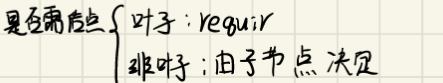 是否需结点{叶子：requir
非叶子；由子节点决定